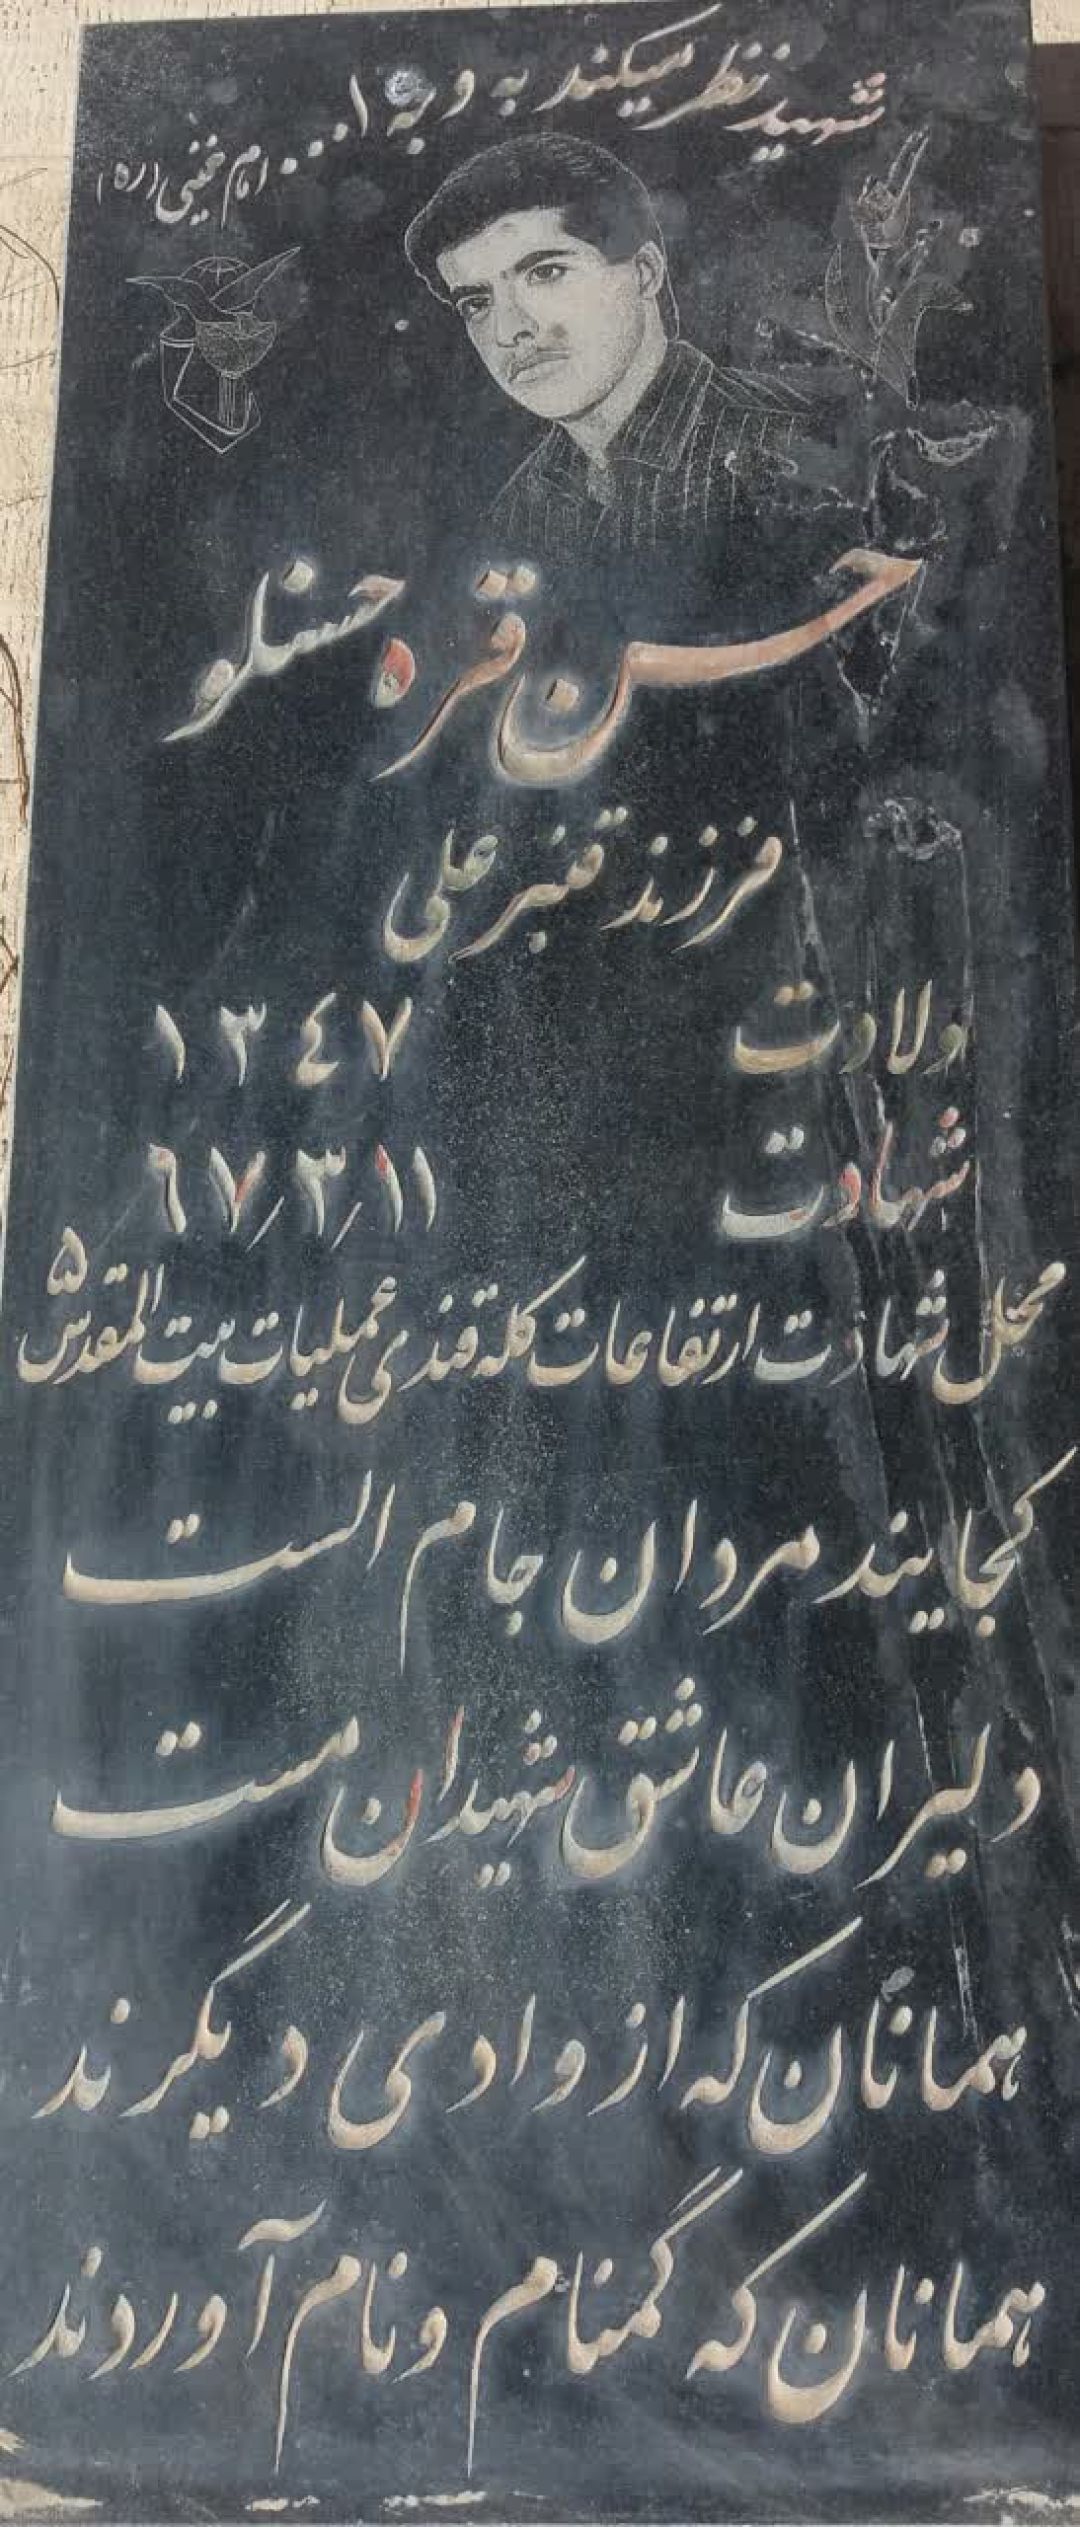 شهید نظر میکند به وجه ا...
امام خمینی (ره)
حسن قره حسنلو
فرزند قنبر علی
ولادت ۱۳٤۷
شهادت ٦۷/۳/۱۱
محل شهادت ارتفاعات کله قندی عملیات بیت المقدس ۵
کجایند مردان جام الست
دلیران عاشق شهیدان مست
همانان که از وادی دیگرند
همانان که گمنام و نام آورند